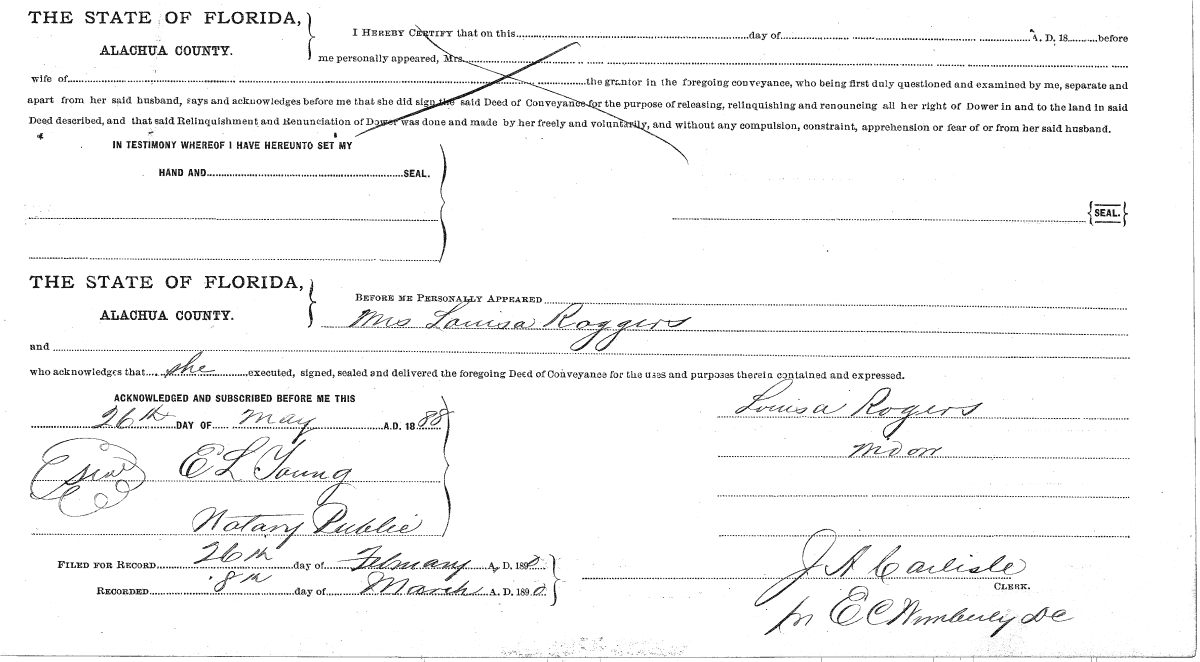 THE STATE OF FLORIDA,
ALACHUA COUNTY.
I HEREBY CERTIFY that on this day of A. D. 18 before
me personally appeared, Mrs.
wife of the grantor in the foregoing conveyance, who being first duly questioned and examined by me, separate and
apart from her said husband, says and acknowledges before me that she did sign the said Deed of Conveyance for the purpose of releasing, relinquishing and renouncing all her right of Dower in and to the land in said
Deed described, and that said Relinquishment and Renunciation of Dower was done and made by her freely and voluntarily, and without any compulsion, constraint, apprehension or fear of or from her said husband.
IN TESTIMONY WHEREOF I HAVE HEREUNTO SET MY
HAND AND SEAL.
{SEAL.}
THE STATE OF FLORIDA,
ALACHUA COUNTY.
BEFORE ME PERSONALLY APPEARED
Mrs Louisa Roggers
and
who acknowledges that she executed, signed, sealed and delivered the foregoing Deed of Conveyance for the uses and purposes therein contained and expressed.
ACKNOWLEDGED AND SUBSCRIBED BEFORE ME THIS
26th DAY OF May A.D. 1888
Seal E L Young
Notary Public
Louisa Rogers
FILED FOR RECORD 26th day of February A. D. 1890
RECORDED 8th day of March A. D. 1890
J A Carlisle
CLERK.
E C Wimberly DC